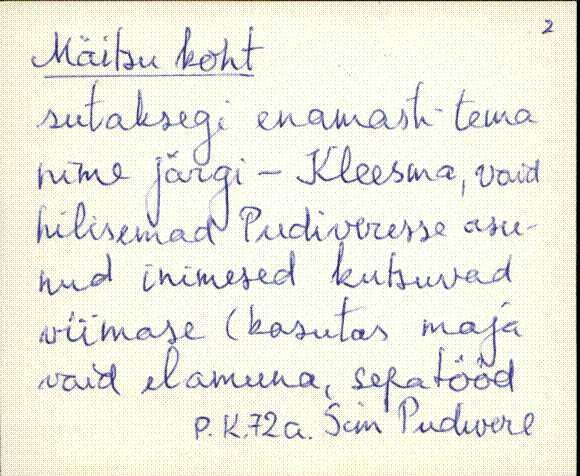 2
Mäitsu koht
sutaksegi enamasti tema
nime järgi – Kleesma, vaid
hilisemad Pudiveresse asu-
nud inimesed kutsuvad
viimase (kasutas maja
vaid elamuna, sepatööd
P.K. 72 a. Sim Pudivere